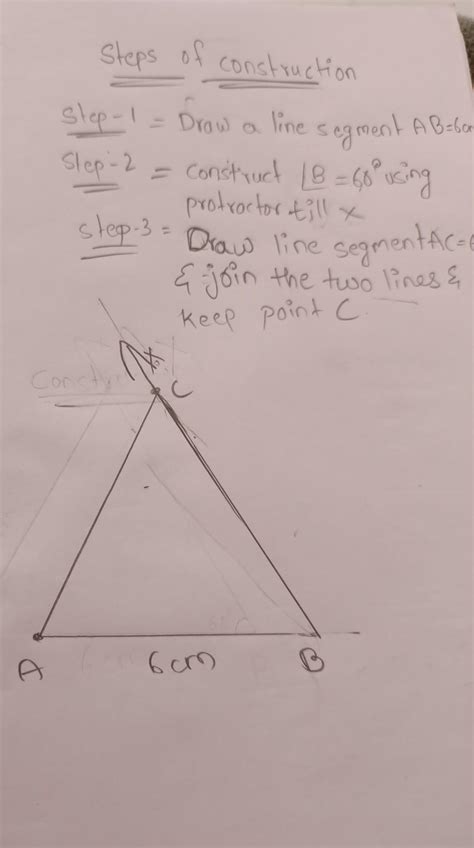 Steps of construction
Step-1 = Draw a line segment AB=6cm
Step-2 = construct ∠B = 60° using
protractor till x
Step-3 = Draw line segment AC=
& join the two lines &
keep point C.
x
C
A
6cm
B